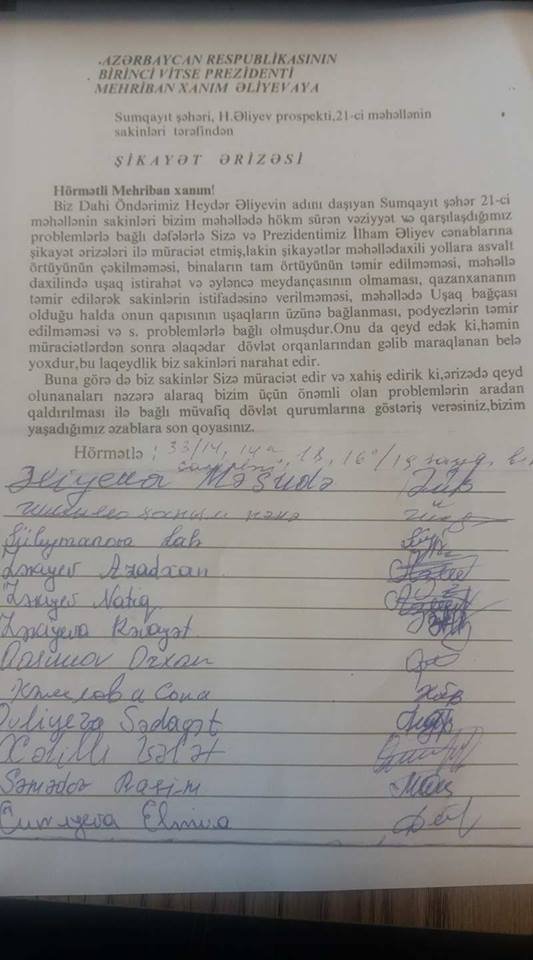 .AZƏRBAYCAN RESPUBLİKASININ
BİRİNCİ VİTSE PREZİDENTİ
MEHRİBAN XANIM ƏLİYEVAYA
Sumqayıt şəhəri, H.Əliyev prospekti,21-ci məhəllənin
sakinləri tərəfindən
ŞİKAYƏT ƏRİZƏSİ
Hörmətli Mehriban xanım!
Biz Dahi Öndərimiz Heydər Əliyevin adını daşıyan Sumqayıt şəhər 21-ci
məhəllənin sakinləri bizim məhəllədə hökm sürən vəziyyət və qarşılaşdığımız
problemlərlə bağlı dəfələrlə Sizə və Prezidentimiz İlham Əliyev cənablarına
şikayət ərizələri ilə müraciət etmiş,lakin şikayətlər məhəllədaxili yollara asvalt
örtüyünün çəkilməməsi, binaların tam örtüyünün təmir edilməməsi, məhəllə
daxilində uşaq istirahət və əyləncə meydançasının olmaması, qazanxananın
təmir edilərək sakinlərin istifadəsinə verilməməsi, məhəllədə Uşaq bağçası
olduğu halda onun qapısının uşaqların üzünə bağlanması, podyezlərin təmir
edilməməsi və s. problemlərlə bağlı olmuşdur.Onu da qeyd edək ki,həmin
müraciətlərdən sonra əlaqədar dövlət orqanlarından gəlib maraqlanan belə
yoxdur,bu laqeydlik biz sakinləri narahat edir.
Buna görə də biz sakinlər Sizə müraciət edir və xahiş edirik ki,ərizədə qeyd
olunanaları nəzərə alaraq bizim üçün önəmli olan problemlərin aradan
qaldırılması ilə bağlı müvafiq dövlət qurumlarına göstəriş verəsiniz,bizim
yaşadığımız əzablara son qoyasınız.
Hörmətlə : 33/14, 14a, 18, 16a/19
Əliyeva Məsudə
Süleymanova
Zəkiyev Azadxan
Zəkiyev Natiq
Zəkiyeva Rəvayət
Qasımov Orxan
Сона
Quliyeva Sədaqət
Xəlilli
Səmədov Rasim
Elmira